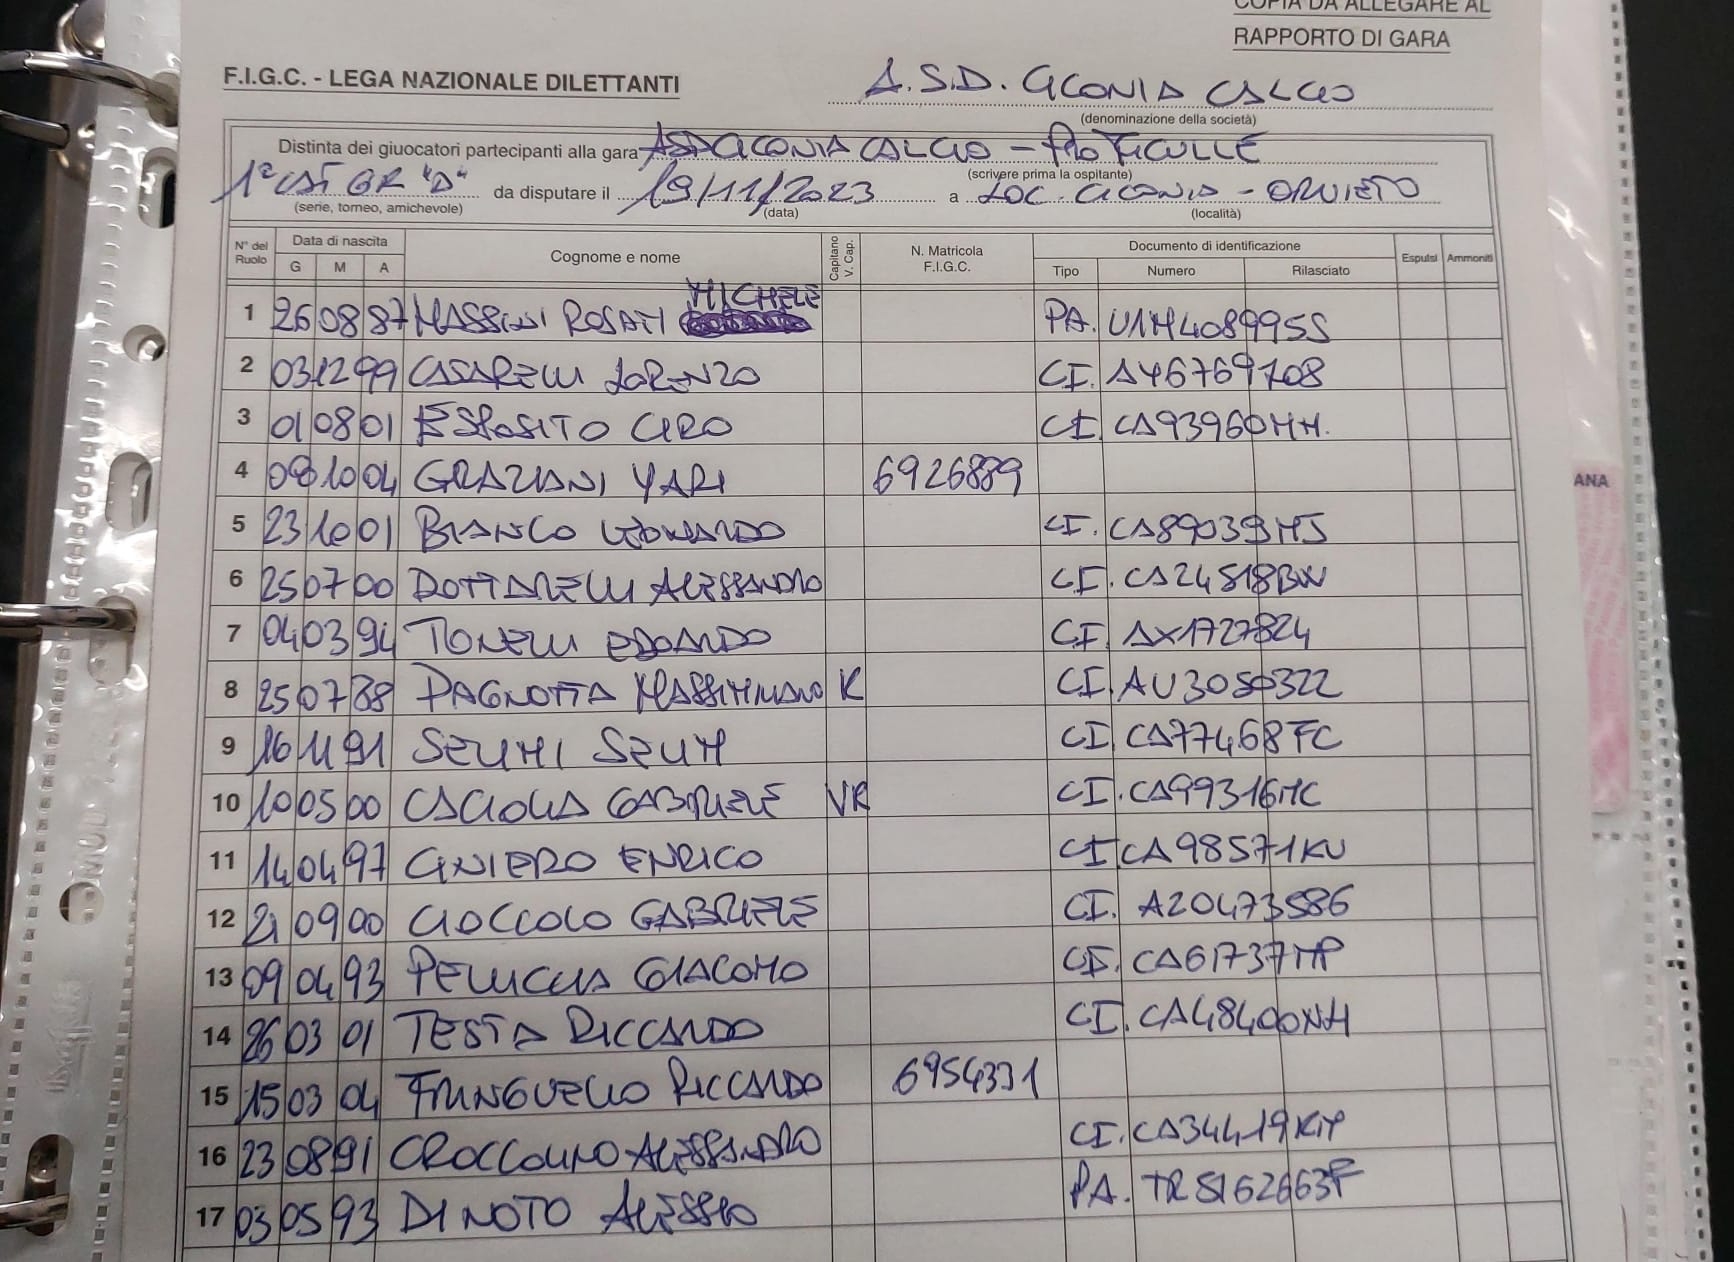 COPIA DA ALLEGARE AL
RAPPORTO DI GARA
F.I.G.C. - LEGA NAZIONALE DILETTANTI
A.S.D. CICONIA CALCIO
(denominazione della società)
Distinta dei giuocatori partecipanti alla gara ASD CICONIA CALCIO - PRO FICULLE
(scrivere prima la ospitante)
1ª CAT GR "D" da disputare il 19/11/2023 a LOC. CICONIA - ORVIETO
(serie, torneo, amichevole) (data) (località)
N° del Ruolo Data di nascita G M A Cognome e nome Capitano V. Cap. N. Matricola F.I.G.C. Documento di identificazione Tipo Numero Rilasciato Espulsi Ammoniti
1 26 08 87 MASSINI ROSATI MICHELE PA. U1M408995S
2 03 12 99 CASARELLI LORENZO CI. AY6769708
3 01 08 01 ESPOSITO CIRO CI CA93960HH.
4 09 10 04 GRAZIANI YARI 6926889
5 23 10 01 BIANCO LEONARDO CI. CA89039MJ
6 25 07 00 DOTTARELLI ALESSANDRO CI. CA24518BW
7 04 03 94 TONELLI EDOARDO CI. AX1727824
8 25 07 88 PAGNOTTA MASSIMILIANO K CI. AU3050322
9 16 11 91 SELIMI SELIM CI CA77468FC
10 10 05 00 CACIOLLA GABRIELE VK CI. CA99316MC
11 14 04 97 CINIERO ENRICO CI CA98571KU
12 21 09 00 CIOCCOLO GABRIELE CI. AZ0473586
13 09 04 93 PELLICCIA GIACOMO CI. CA61737MP
14 26 03 01 TESTA RICCARDO CI. CA48400NH
15 15 03 04 FRINGUELLO RICCARDO 6954331
16 23 08 91 CROCCOLINO ALESSANDRO CI. CA34419KM
17 03 05 93 DI NOTO ALESSIO PA. TR5162663F
ANA